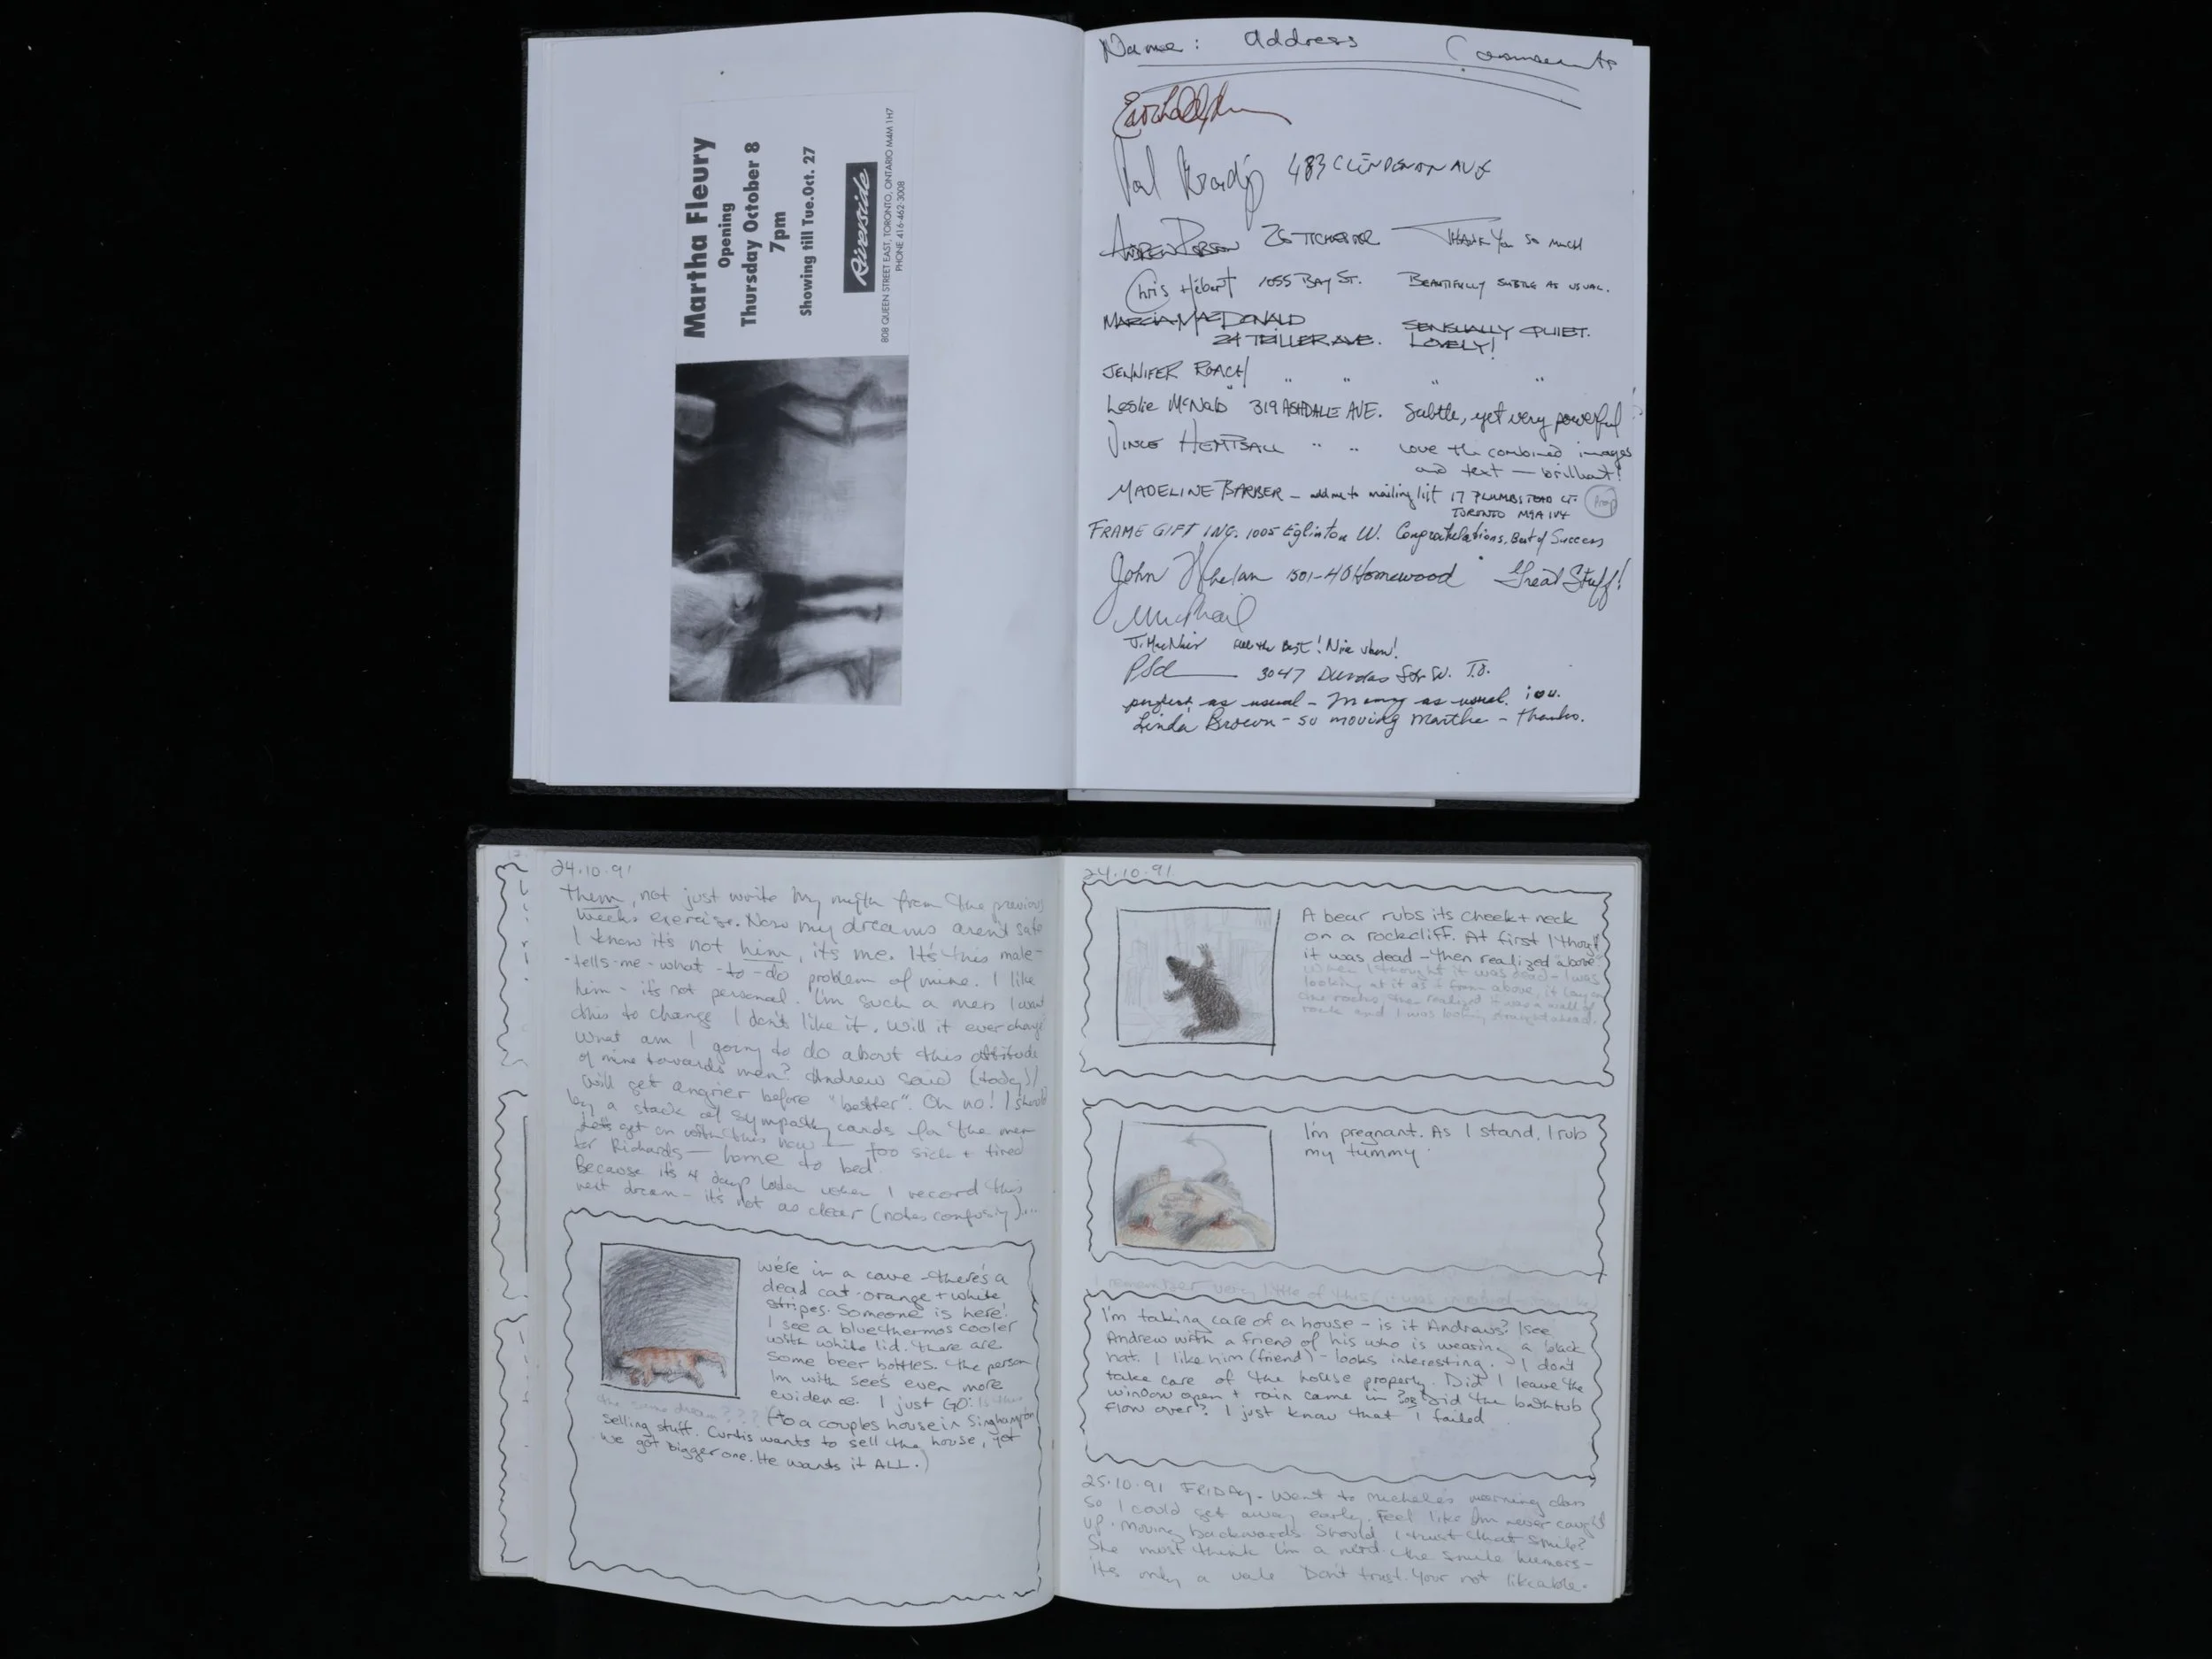 Martha Fleury
Opening
Thursday October 8
7pm
Showing till Tue.Oct. 27
Riverside
808 QUEEN STREET EAST, TORONTO, ONTARIO M4M 1H7
PHONE 416-462-3008
Name: Address Comments
483 CLENDENAN AVE
ANDREW ROBSON 26 THANK YOU SO MUCH
Chris Hébert 1055 BAY ST. BEAUTIFULLY SUBTLE AS USUAL.
MARCIA MACDONALD SENSUALLY QUIET.
24 TRILLER AVE. LOVELY!
JENNIFER ROACH " " " "
Leslie McNab 319 ASHDALE AVE. Subtle, yet very powerful
VINCE HEMTSALL " " Love the combined images
and text — brilliant!
MADELINE BARBER – add me to mailing list 17 PLUMBSTEAD CT.
TORONTO M9A 1V4
FRAME GIFT INC. 1005 Eglinton W. Congratulations. Best of Success
John Whelan 1501-40 Homewood Great Stuff!
J. MacNair All the Best! Nice show!
3047 Dundas St W. T.O.
perfect as usual – as usual.
Linda Brown – so moving Martha – thanks.
24.10.91
them, not just write my myth from the previous
weeks exercise. Now my dreams aren't safe
I know it's not him, it's me. It's this male-
-tells-me-what-to-do problem of mine. I like
him – it's not personal. I'm such a mess I want
this to change I don't like it. Will it ever change
What am I going to do about this attitude
of mine towards men? Andrew said (today) I
will get angrier before "better". Oh no! I should
buy a stack of sympathy cards for the men
Let's get on with this now — too sick + tired
for Richards — home to bed.
Because it's 4 days later when I record this
next dream – it's not as clear (notes confusing)...
We're in a cave – there's a
dead cat – orange + white
stripes. Someone is here!
I see a blue thermos cooler
with white lid. there are
some beer bottles. the person
I'm with sees even more
evidence. I just GO! Is this
the same dream??? (to a couples house in Singhampton
selling stuff. Curtis wants to sell the house, yet
we got bigger one. He wants it ALL.)
24.10.91
A bear rubs its cheek + neck
on a rockcliff. At first I thought
it was dead – then realized above.
When I thought it was dead – I was
looking at it as if from above, it lay on
the rocks, then realized it was a wall of
rock and I was looking straight ahead.
I'm pregnant. As I stand, I rub
my tummy.
I remember very little of this
I'm taking care of a house – is it Andrews? I see
Andrew with a friend of his who is wearing a black
hat. I like him (friend) – looks interesting. I don't
take care of the house properly. Did I leave the
window open + rain came in? or Did the bathtub
flow over? I just know that I failed
25.10.91 FRIDAY. Went to Michele's morning class
so I could get away early. Feel like I'm never caught
up. Moving backwards Should I trust that smile?
She must think I'm a nerd. the smile humors –
It's only a Don't trust. Your not likeable.